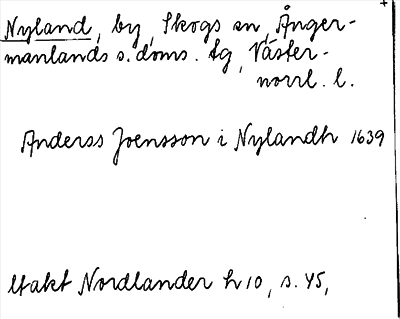 Nyland, by, Skogs sn, Ånger-
manlands s. doms. tg, Väster-
norrl. l.
Anderss Joensson i Nylandh 1639
Utakt Nordlander h 10, s. 45,